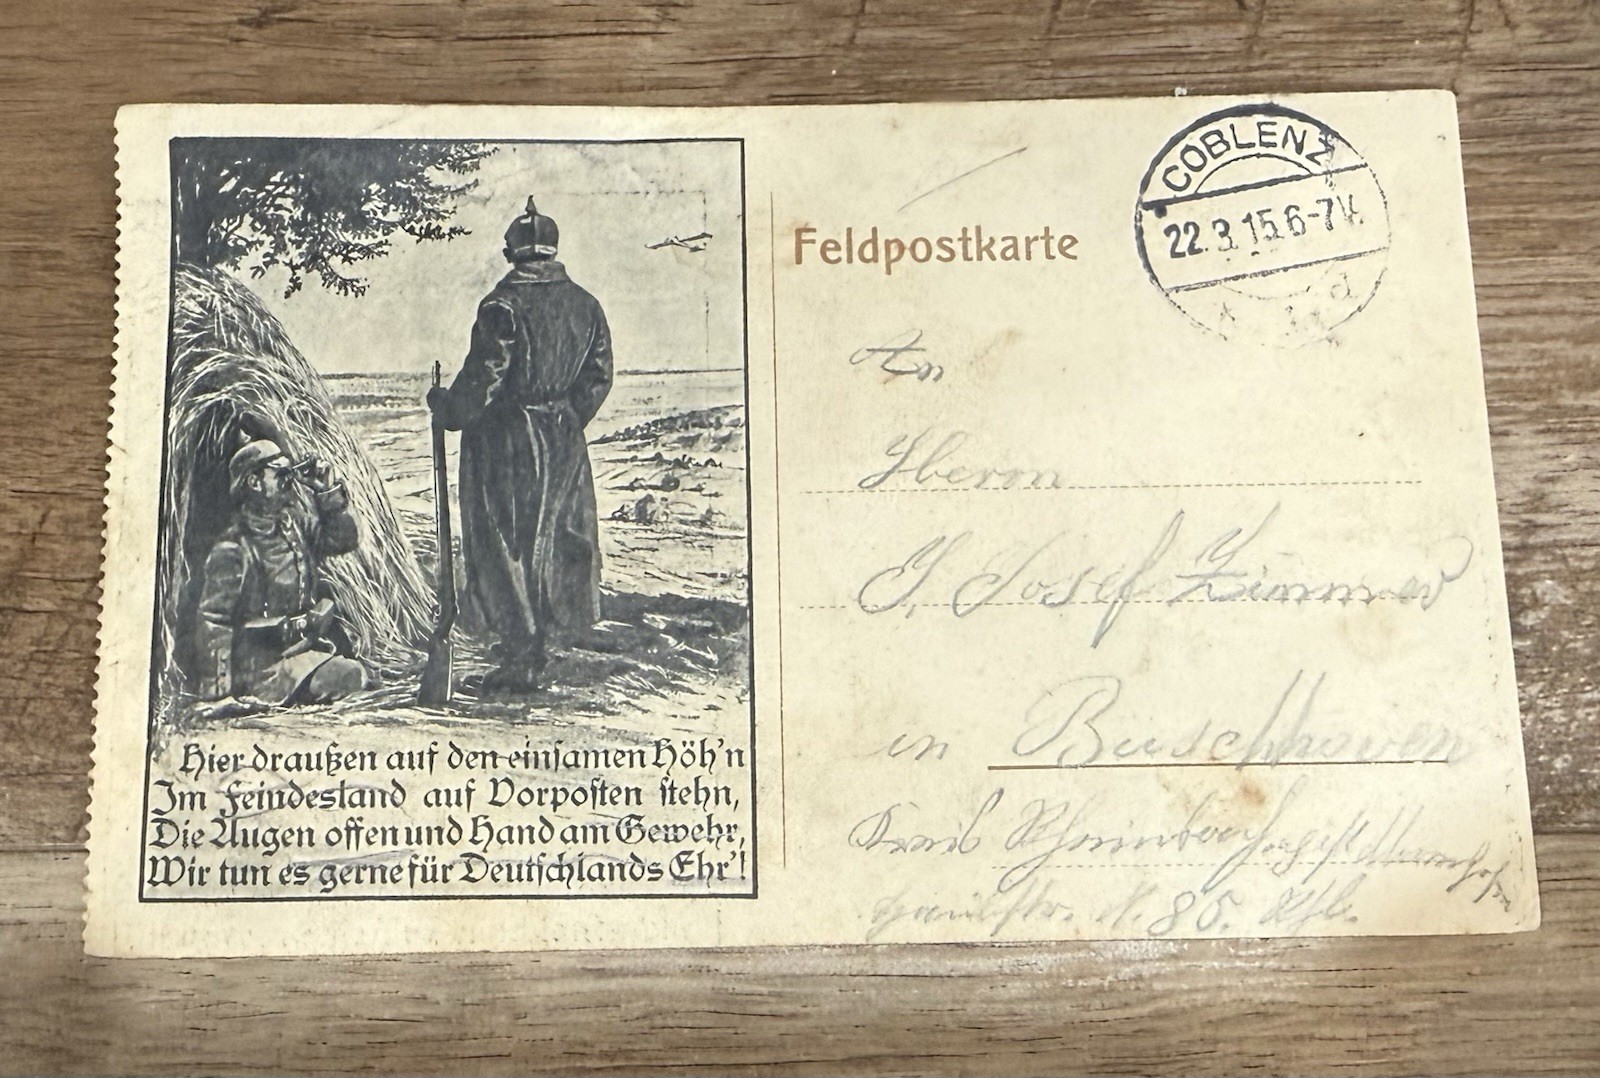 Hier draußen auf den einsamen Höh'n
Im Feindesland auf Vorposten stehn,
Die Augen offen und Hand am Gewehr,
Wir tun es gerne für Deutschlands Ehr'!
COBLENZ
22.3.15.6-7V.
Feldpostkarte
An
Herrn
J. Josef Zimmer
in Buschhoven
Kreis Rheinbach
N. 85.